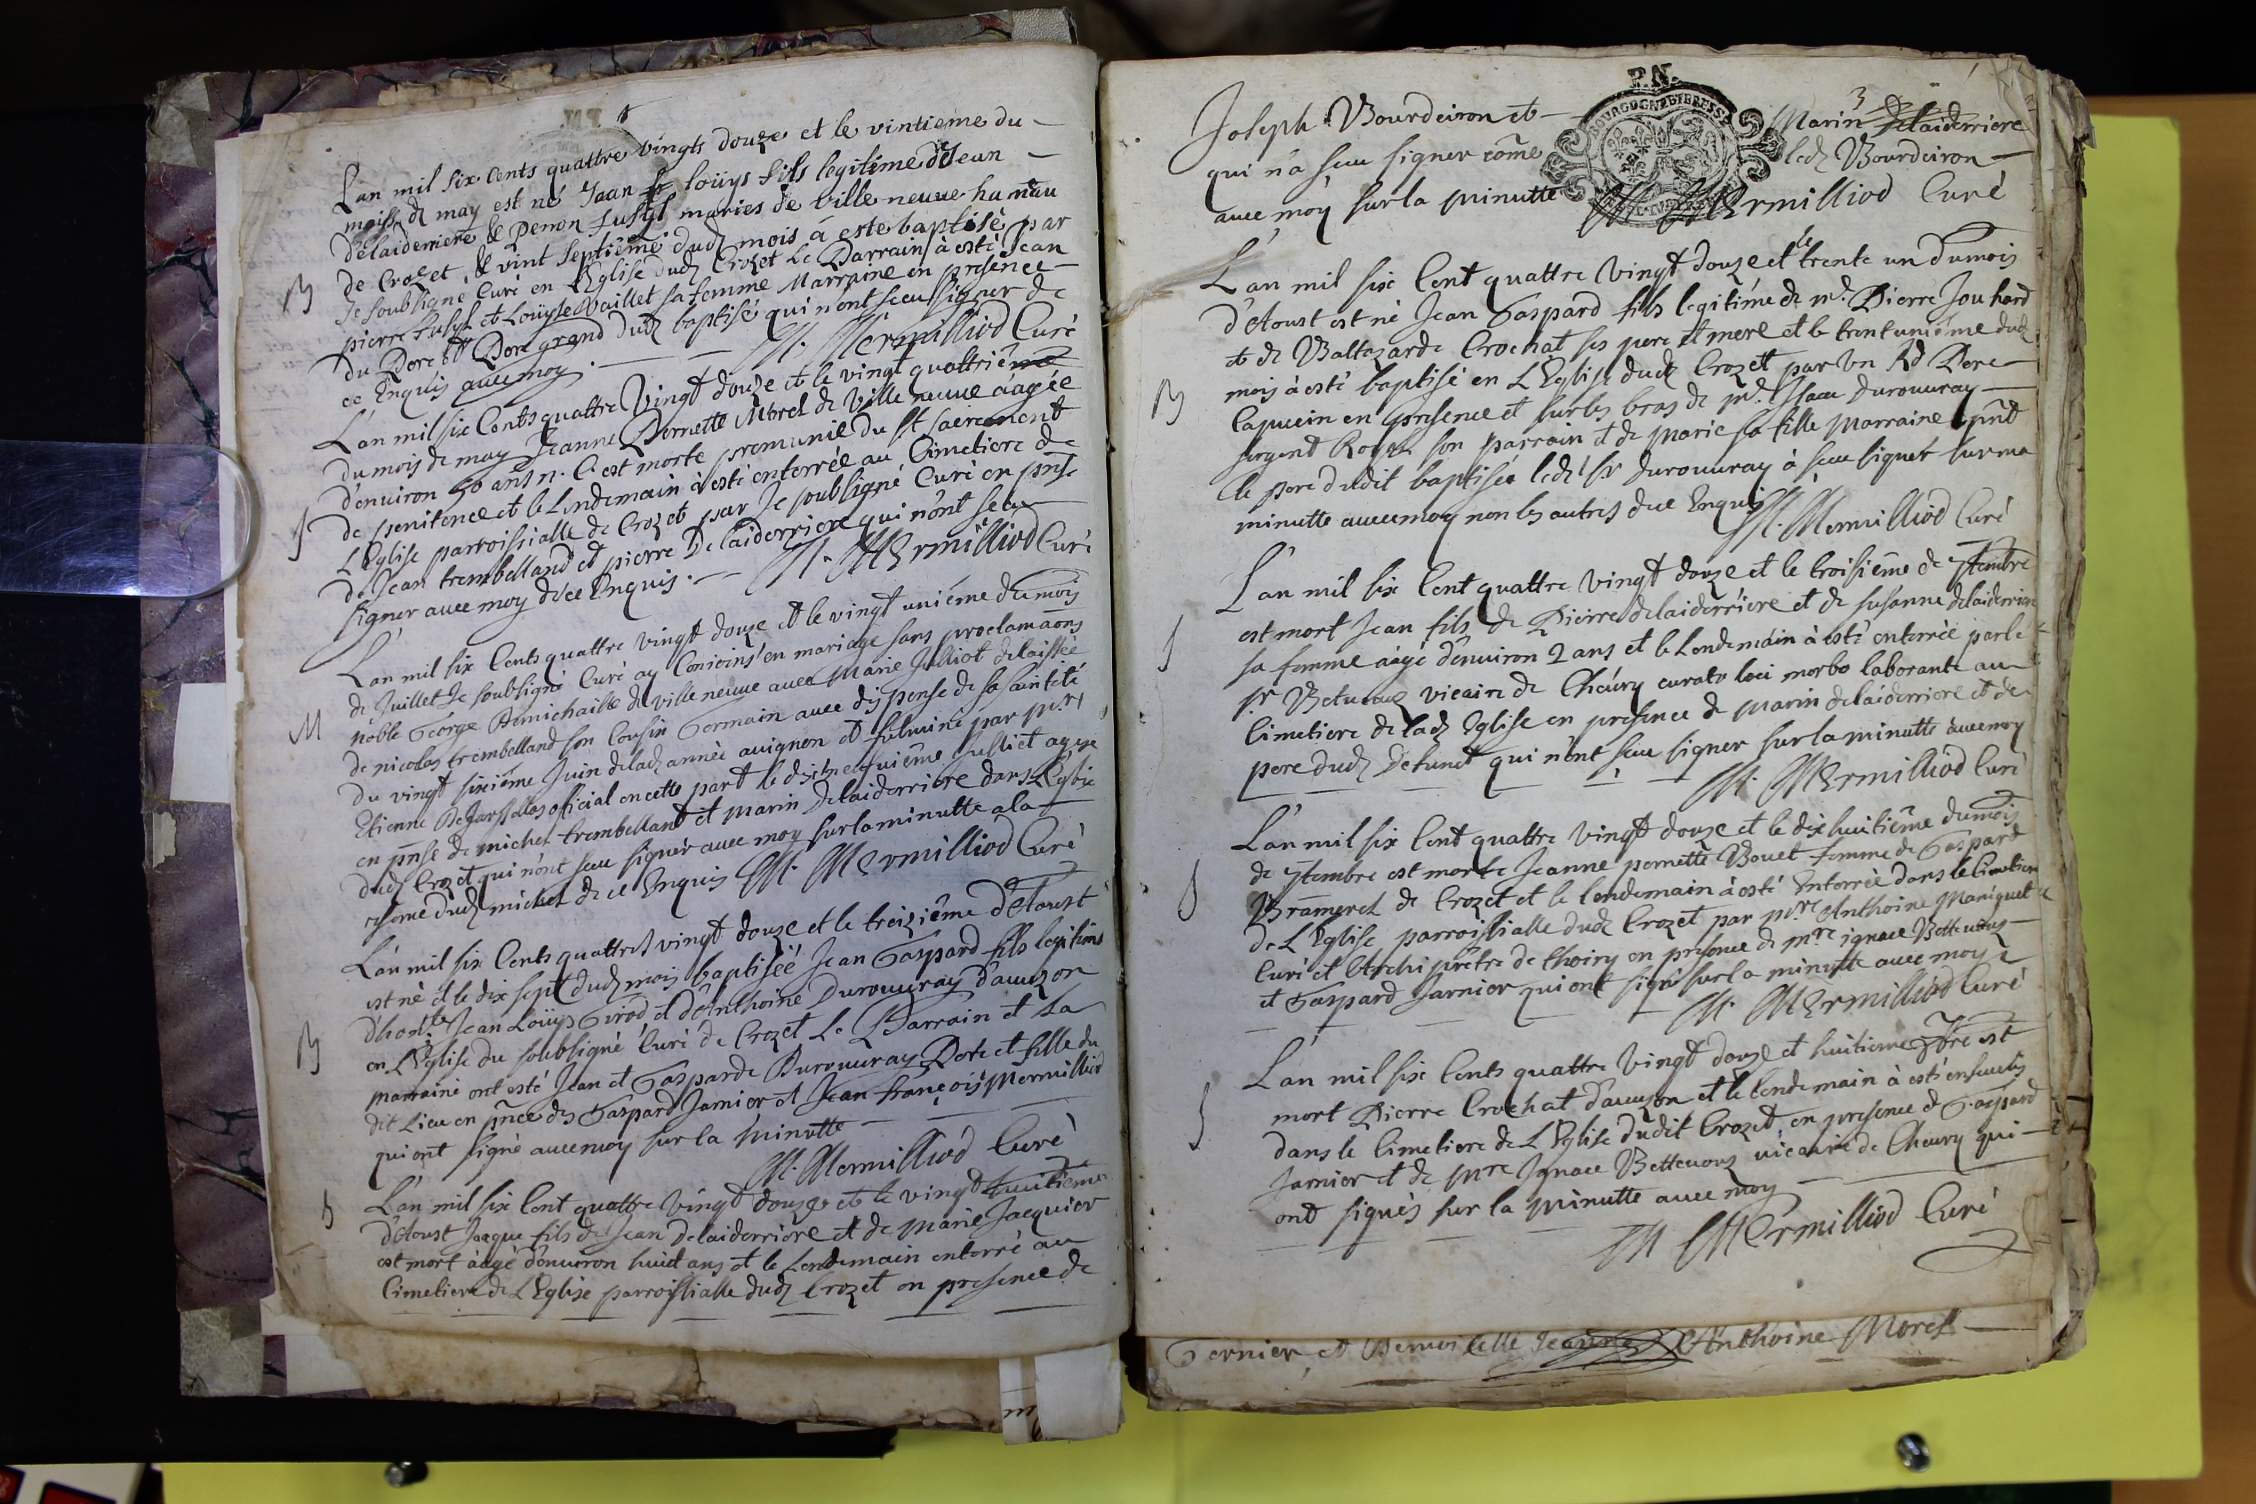 L'an mil six cents quattre vingts douze et le vintieme du
mois de may est né Jean louijs fils legitime de Jean
Delaiderriere & Pernon fusyl mariés de ville neuve hameau
de Crozet & vint septieme dud mois à este baptisé par
Je soubsigné Curé en l'Eglise dud Crozet Le Parrain à esté Jean
pierre fusyl et Louijse Vaillet sa femme Marraine en presence
du Pere et Pere grand dud baptisé qui n'ont sceu signer de
ce Enquis avec moy. M. Mermilliod Curé
B
L'an mil six Cents quattre Vingt douze et le vingt quattriéme
du mois de may Jeanne Pernette Morel de Ville neuve aagée
d'environ 50 ans est morte premunie du st sacrement
de penitence et le Lendemain à esté enterrée au Cimetiere de
L'Eglise parroissialle de Crozet par Je soubsigné Curé en pnse
de Jean trembelland et pierre Delaiderriere qui n'ont sceu
signer avec moy de ce Enquis. M. MErmilliod Curé
S
L'an mil six Cents quattre vingt douze et le vingt uniéme du mois
de Juillet Je soubsigné Curé ay Conioins en mariage sans proclamaons
noble George Armichaille de ville neuve avec Marie Julliot delaissée
de nicolas trembelland son Cousin Germain avec dispense de sa sainteté
du vingt sixiéme Juin delad année avignon et fulminé par
Etienne official en cette part le Juillet
en pnse de michel trembelland et marin delaiderriere dans l'Eglise
dud Crozet qui n'ont sceu signer avec moy sur la minutte a la
reserve dud michel de ce Enquis M. Mermilliod Curé
M
L'an mil six Cents quattre vingt douze et le treiziéme d'Aoust
est né et le dix sept dud mois baptiséé Jean Gaspard fils legitime
d'hon.le Jean Louijs Girod et d'Anthoine Durouvray d'avuzon
en l'Eglise du soubsigné Curé de Crozet Le Parrain et la
marraine ont esté Jean et Gasparde Durouvray Pere et fille du
dit Lieu en pnce de Gaspard Jarnier et Jean françois Mermilliod
qui ont signé avec moy sur la minutte
M. Mermilliod Curé
B
L'an mil six Cent quattre Vingt douze et le vingt huitieme
d'Aoust Jacque fils de Jean delaiderriere et de Marie Jacquier
est mort aagé d'environ huit ans et le Lendemain enterré au
Cimetiere de L'Eglise parroissialle dud Crozet en presence de
S
3
Joseph Bourdeiron et Marin Delaiderriere
qui n'a sceu signer cõme led Bourdeiron
avec moy sur la minutte M MErmilliod Curé
P.N.
BOURGOGNE ET BRESSE
L'an mil six Cent quattre Vingt douze et le trente un du mois
d'Aoust est né Jean Gaspard fils legitime de md. Pierre Jouhard
et de Baltazarde Crochat ses pere et mere et le trent uniéme dud
mois à esté baptisé en L'Eglise dud Crozet par un Rd Pere
Capucin en presence et sur les bras de md. Isaac Durouvray
sergent Royal son parrain et de Marie sa fille Marraine pnt
le pere dudit baptisé led sr Durouvray à sceu signer sur ma
minutte avec moy non les autres de ce Enquis M. Mermilliod Curé
B
L'an mil six Cent quattre Vingt douze et le troisiéme de 7tembre
est mort Jean fils de Pierre delaiderriere et de susanne delaiderriere
sa femme aagé d'environ 2 ans et le Lendemain à esté enterrée par le
sr Betuoux vicaire de Cheury curato loci morbo laborante au
Cimetiere de lad Eglise en presence de marin delaiderriere et de
pere dud Defunct qui n'ont sceu signer sur la minutte avec moy
M. MErmilliod Curé
S
L'an mil six Cent quattre Vingt douze et le dix huitiéme du mois
de 7tembre est morte Jeanne pernette Bouet femme de Gaspard
Bramerel de Crozet et le lendemain à esté Enterrée dans le Cimetiere
de L'Eglise parroissialle dud Crozet par mre Anthoine Maniquet
Curé et Archiprêtre de thoiry en presence de mre ignace Bettevoux
et Gaspard Jarnier qui ont signé sur la minutte avec moy
M. MErmilliod Curé
S
L'an mil six Cents quattre Vingt douze et huitieme est
mort Pierre Crochat d'avuzon et le lendemain à esté enseuelis
dans le Cimetiere de L'Eglise dudit Crozet, en presence de Gaspard
Jarnier et de Mre Ignace Bettevoux vicaire de Cheury qui
ont signés sur la minutte avec moy
M MErmilliod Curé
S
Gernier et Demoiselle Anthoine Morel